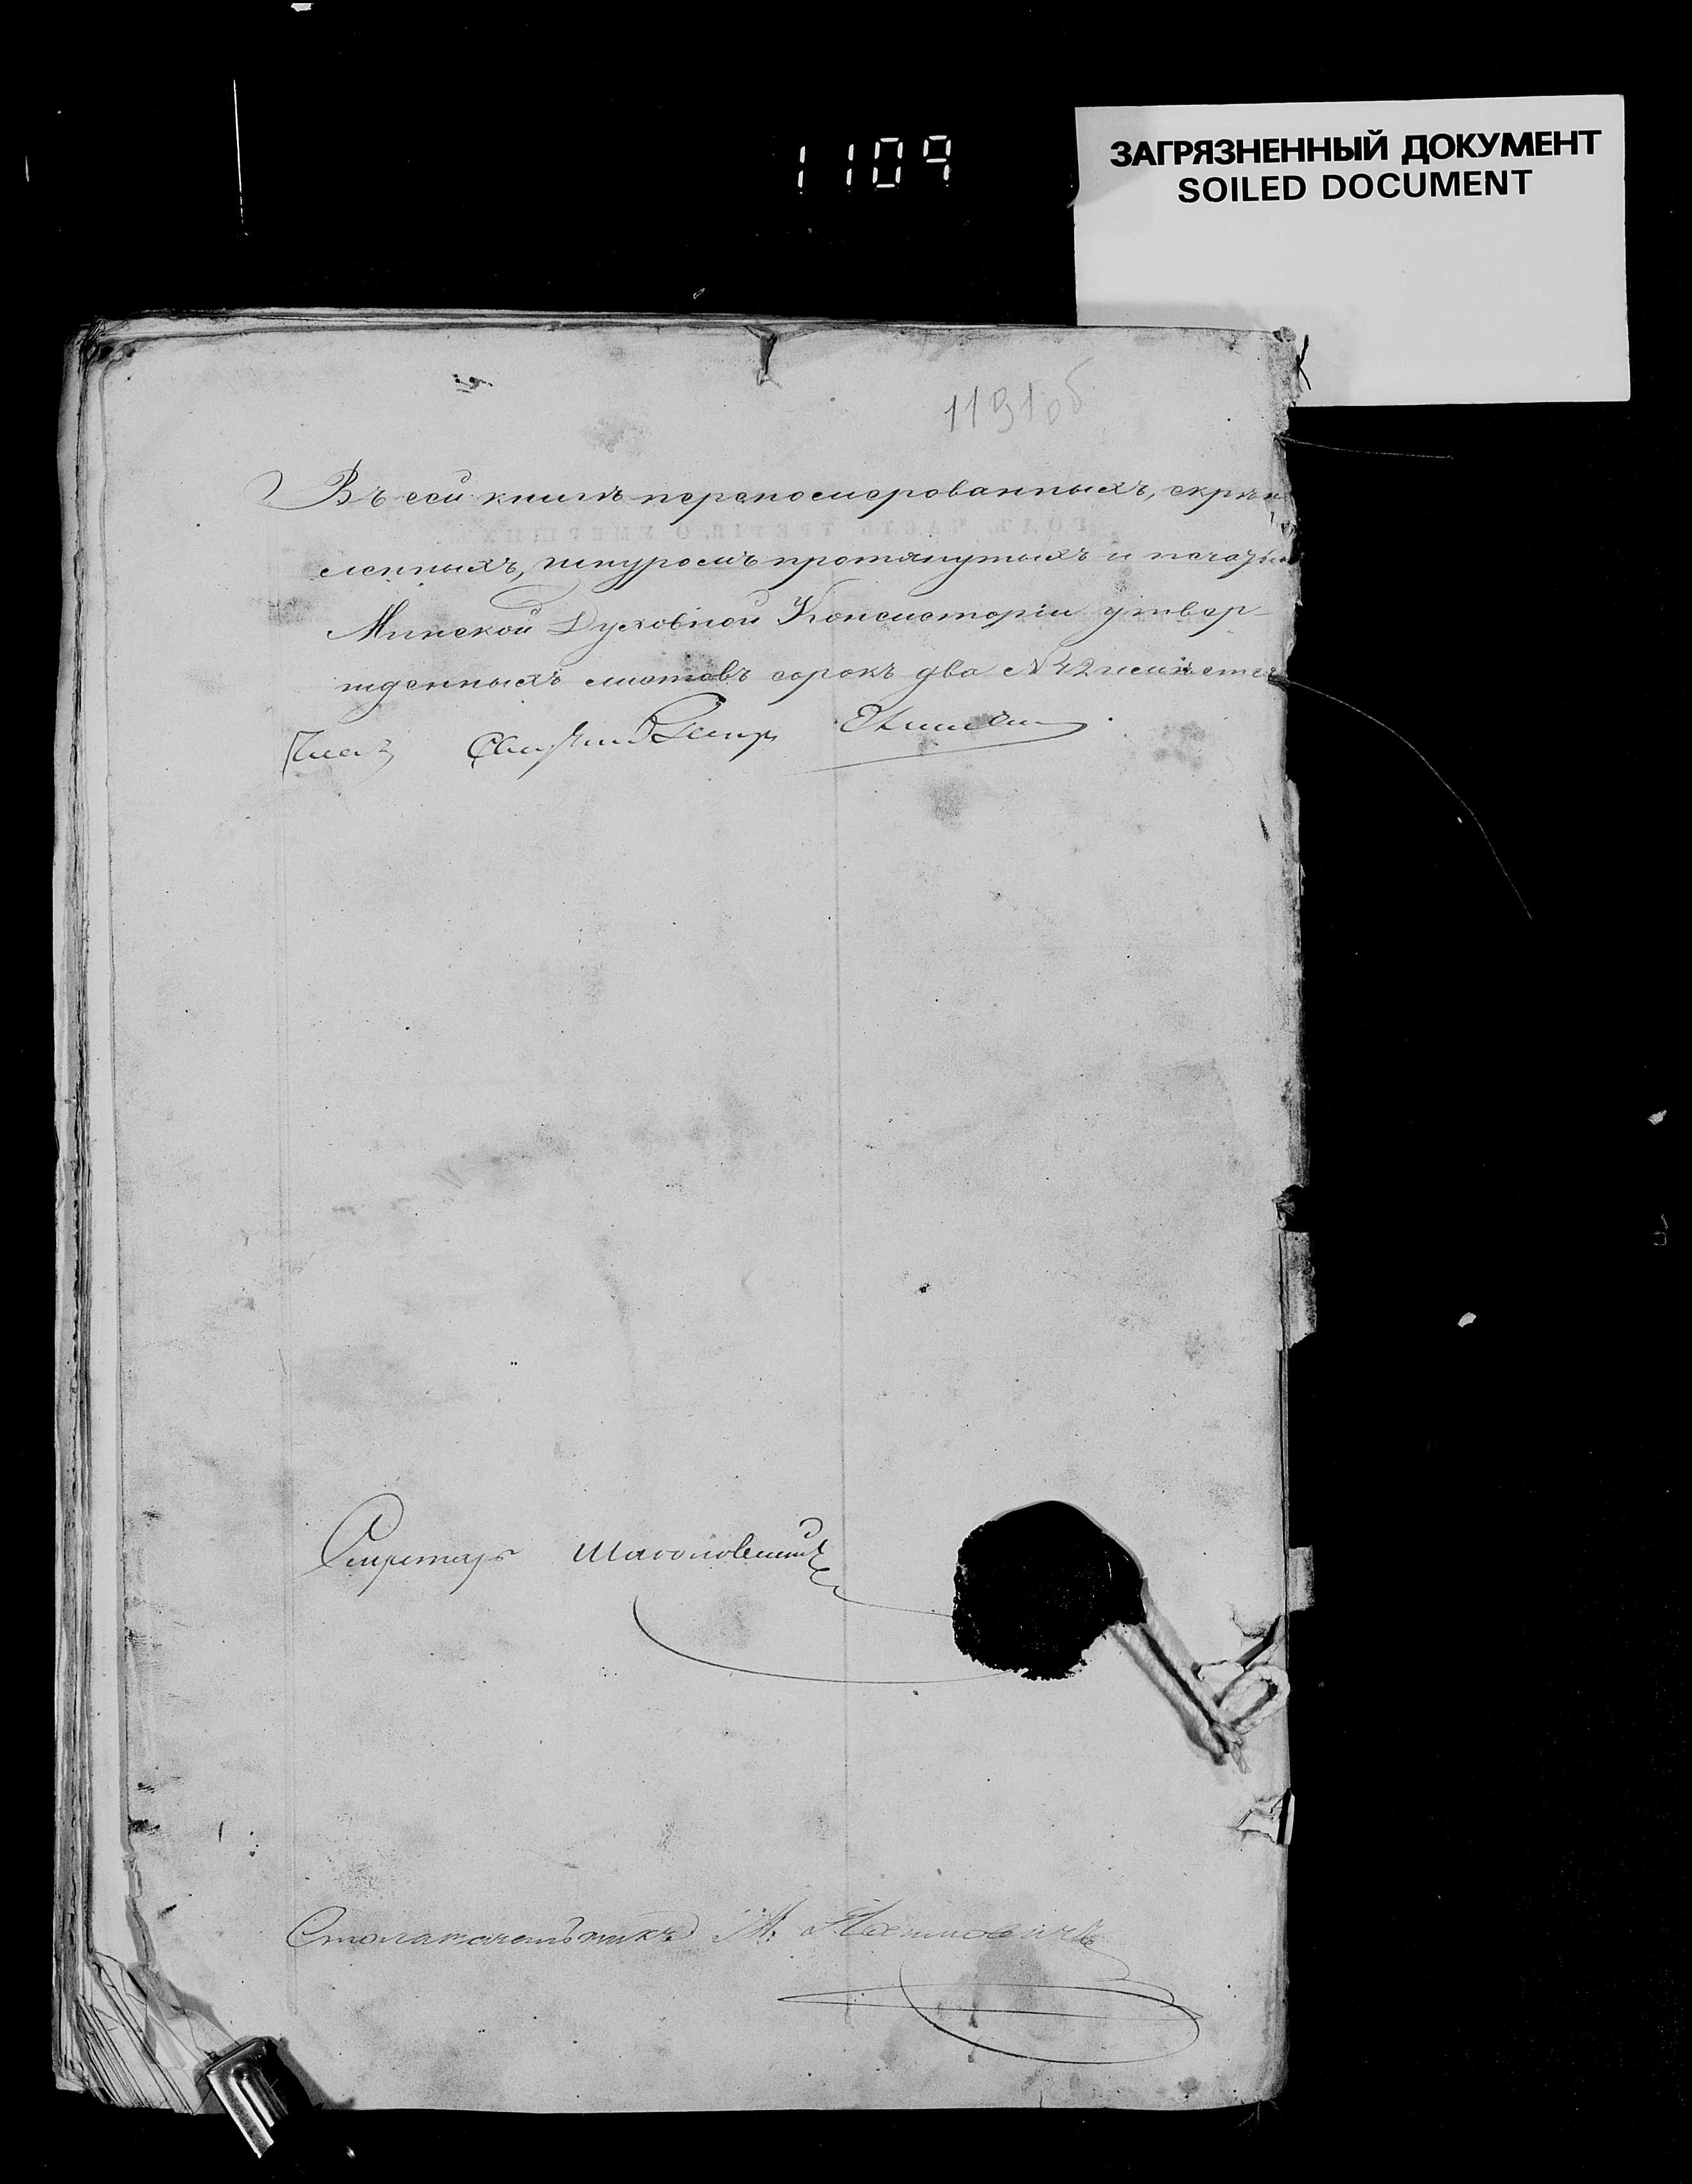 1109
ЗАГРЯЗНЕННЫЙ ДОКУМЕНТ
SOILED DOCUMENT
1191об
Въ сей книгѣ перенумерованныхъ, скрѣп
ленныхъ, шнуромъ протянутыхъ и печатью
Минской Духовной Консисторіи утвер-
жденныхъ листовъ сорокъ два № 42 имѣется
Членъ
Секретарь
Столоначальникъ